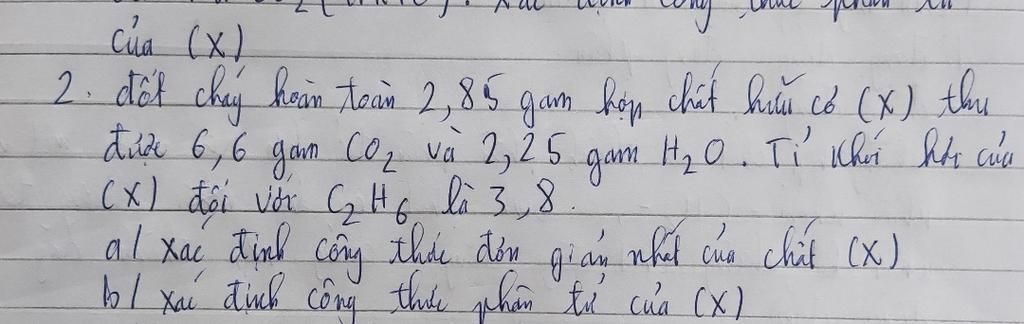 của (X)
2. đốt cháy hoàn toàn 2,85 gam hợp chất hữu cơ (X) thu
được 6,6 gam CO2 và 2,25 gam H2O. Tỉ khối hơi của
(X) đối với C2H6 là 3,8.
a/ xác định công thức đơn giản nhất của chất (X)
b/ xác định công thức phân tử của (X)